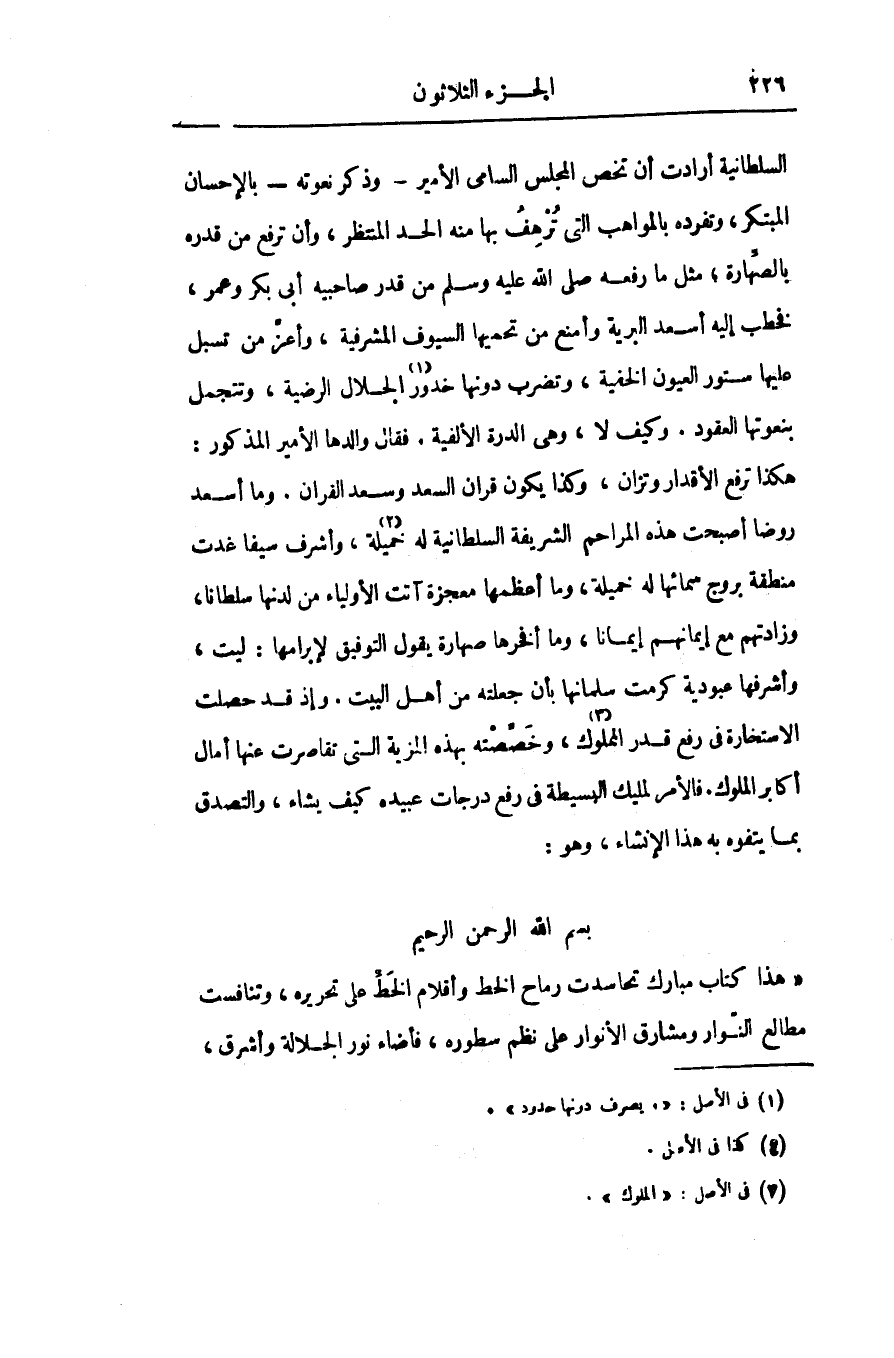 ٢٢٦ الجزء الثلاثون
السلطانية أرادت أن تخص المجلس السامى الأمير – وذكر نعوته – بالإحسان
المبتكر، وتفرده بالمواهب التى تُرْهِفُ بها منه الحد المنتظر، وأن ترفع من قدره
بالصِّهارة؛ مثل ما رفعه صلى الله عليه وسلم من قدر صاحبيه أبى بكر وعمر،
فخطب إليه أسعد البرية وأمنع من تحميها السيوف المشرفية، وأعزَّ من تسبل
عليها ستور العيون الخفية، وتضرب دونها خدور(١) الجلال الرضية، وتتجمل
بنعوتها العقود. وكيف لا، وهى الدرة الألفية. فقال والدها الأمير المذكور:
هكذا ترفع الأقدار وتزان، وكذا يكون قران السعد وسعد القران. وما أسعد
روضا أصبحت هذه المراحم الشريفة السلطانية له خميلة(٢)، وأشرف سيفا غدت
منطقة بروج سمائها له خميلة، وما أعظمها معجزة آتت الأولياء من لدنها سلطانا،
وزادتهم مع إيمانهم إيمانا، وما أفخرها صهارة يقول التوفيق لإبرامها: ليت،
وأشرفها عبودية كرمت سلمانها بأن جعلته من أهل البيت. وإذ قد حصلت
الاستخارة فى رفع قدر المملوك(٣)، وخَصَّصْته بهذه المزية التى تقاصرت عنها أمال
أكابر الملوك. فالأمر لمليك البسيطة فى رفع درجات عبيده كيف يشاء، والتصدق
بما يتفوه به هذا الإنشاء، وهو:
بسم الله الرحمن الرحيم
« هذا كتاب مبارك تحاسدت رماح الخط وأقلام الخَطِّ على تحريره، وتنافست
مطالع النّوار ومشارق الأنوار على نظم سطوره، فأضاء نور الجلالة وأشرق،
(١) فى الأصل: «. يصرف دونها حدود».
(٤) كذا فى الأصل.
(٧) فى الأصل: «الملوك».